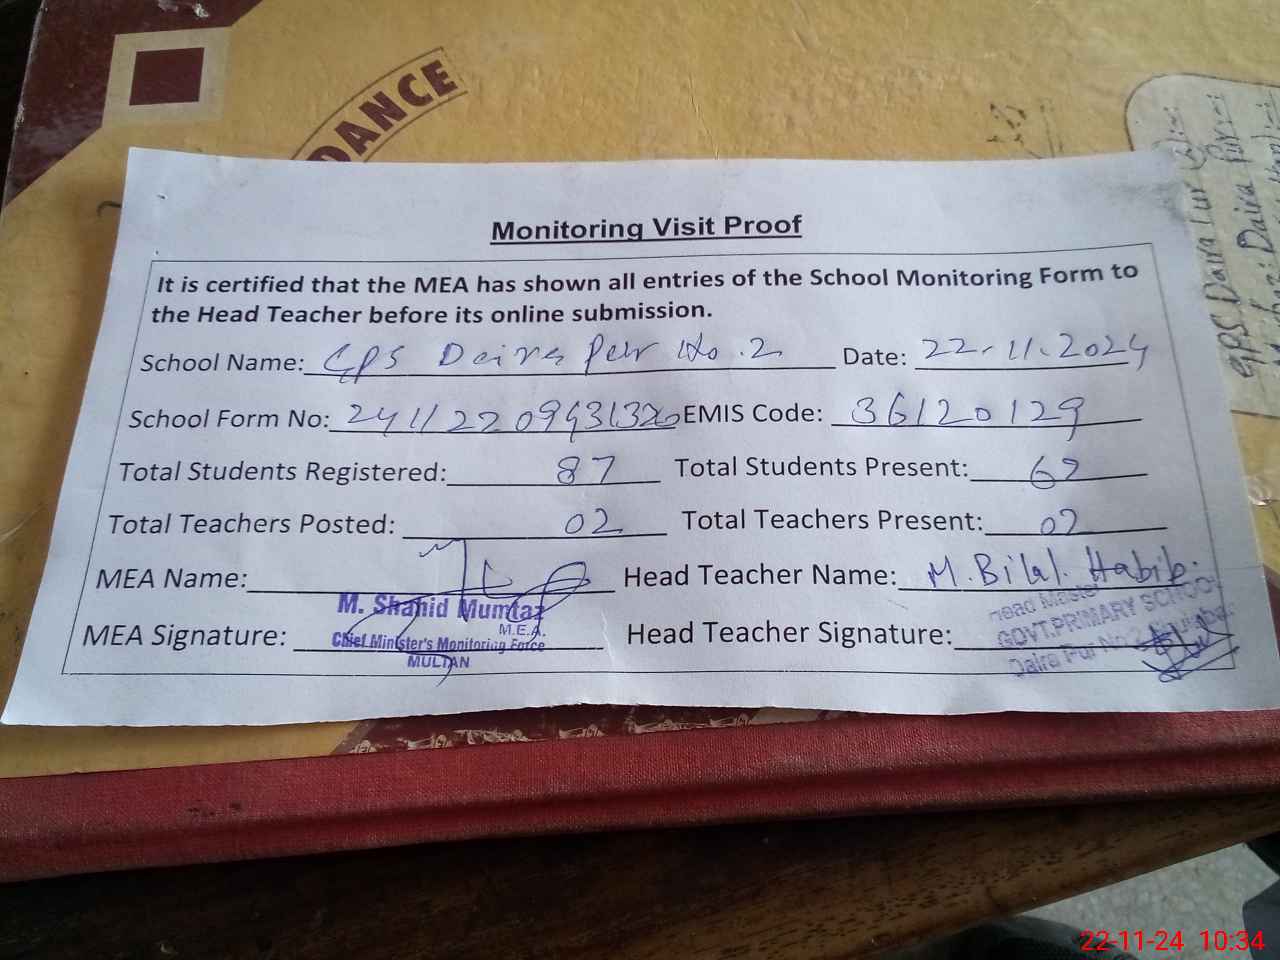 DANCE
Monitoring Visit Proof
It is certified that the MEA has shown all entries of the School Monitoring Form to
the Head Teacher before its online submission.
School Name: GPS Daira Pur No. 2 Date: 22.11.2024
School Form No: EMIS Code: 36120129
Total Students Registered: 87 Total Students Present:
Total Teachers Posted: 02 Total Teachers Present: 02
MEA Name: Head Teacher Name: M. Bilal. Habib.
M. Shahid Mumtaz
M.E.A.
Chief Minister's Monitoring Force
MULTAN
MEA Signature: Head Teacher Signature:
Head Master
GOVT. PRIMARY SCHOOL
Daira Pur No 2
GPS Daira Pur
Daira Pur
22-11-24 10:34